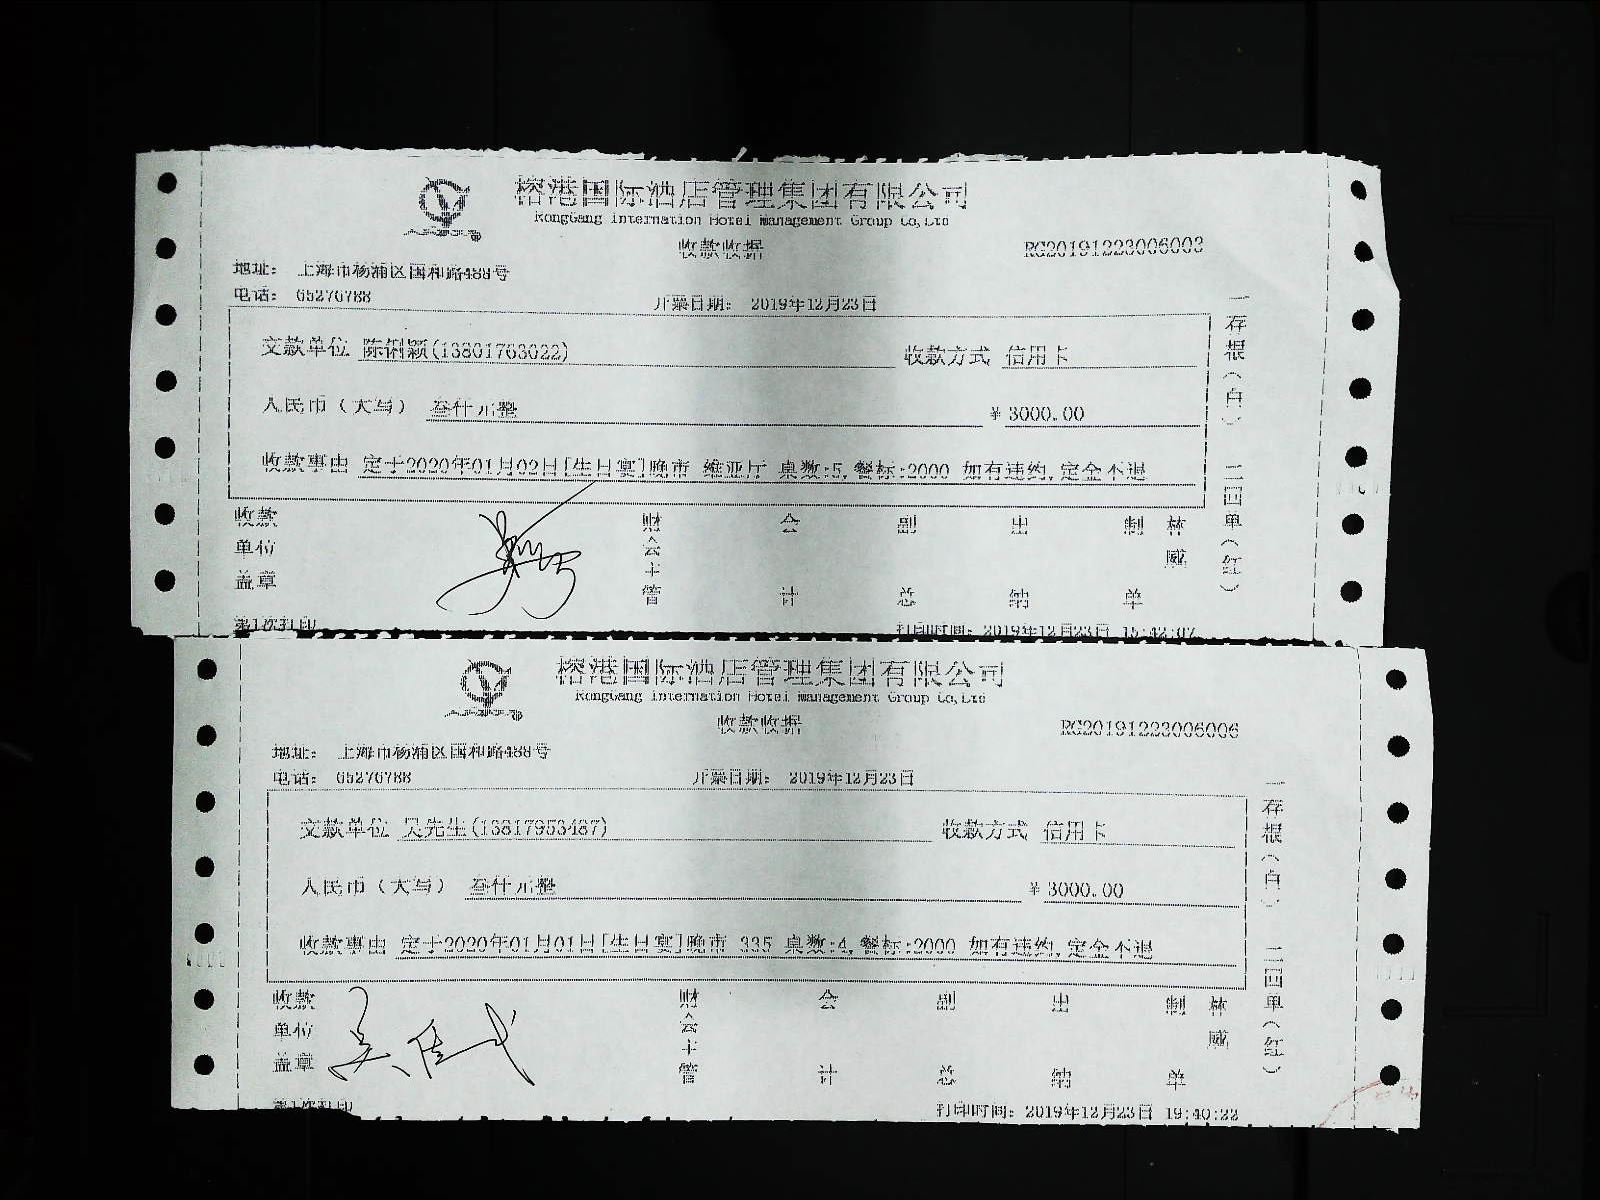 榕港国际酒店管理集团有限公司
RongGang Internation Hotel Management Group Co,Ltd
收款收据
RG20191223006003
地址： 上海市杨浦区国和路488号
电话： 65276788
开票日期： 2019年12月23日
交款单位 陈俐颖(13801763022)
收款方式 信用卡
人民币（大写） 叁仟元整
￥ 3000.00
收款事由 定于2020年01月02日[生日宴]晚市 维亚厅 桌数:5,餐标:2000 如有违约,定金不退
收款单位盖章
财会主管
会计
副总
出纳
制单
林威
一存根（白） 二回单（红）
第1次打印
打印时间： 2019年12月23日 15:42:07
榕港国际酒店管理集团有限公司
RongGang Internation Hotel Management Group Co,Ltd
收款收据
RG20191223006006
地址： 上海市杨浦区国和路488号
电话： 65276788
开票日期： 2019年12月23日
交款单位 吴先生(13817953487)
收款方式 信用卡
人民币（大写） 叁仟元整
￥ 3000.00
收款事由 定于2020年01月01日[生日宴]晚市 335 桌数:4,餐标:2000 如有违约,定金不退
收款单位盖章
财会主管
会计
副总
出纳
制单
林威
一存根（白） 二回单（红）
第1次打印
打印时间： 2019年12月23日 19:40:22